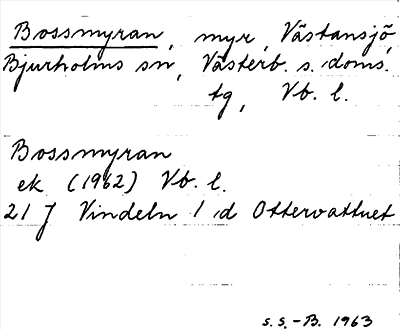 Bossmyran, myr, Västansjö,
Bjurholms sn, Västerb. s. doms.
tg, Vb. l.
Bossmyran
ek (1962) Vb. l.
21 J Vindeln 1 d Ottervattnet
s.s.-B. 1963